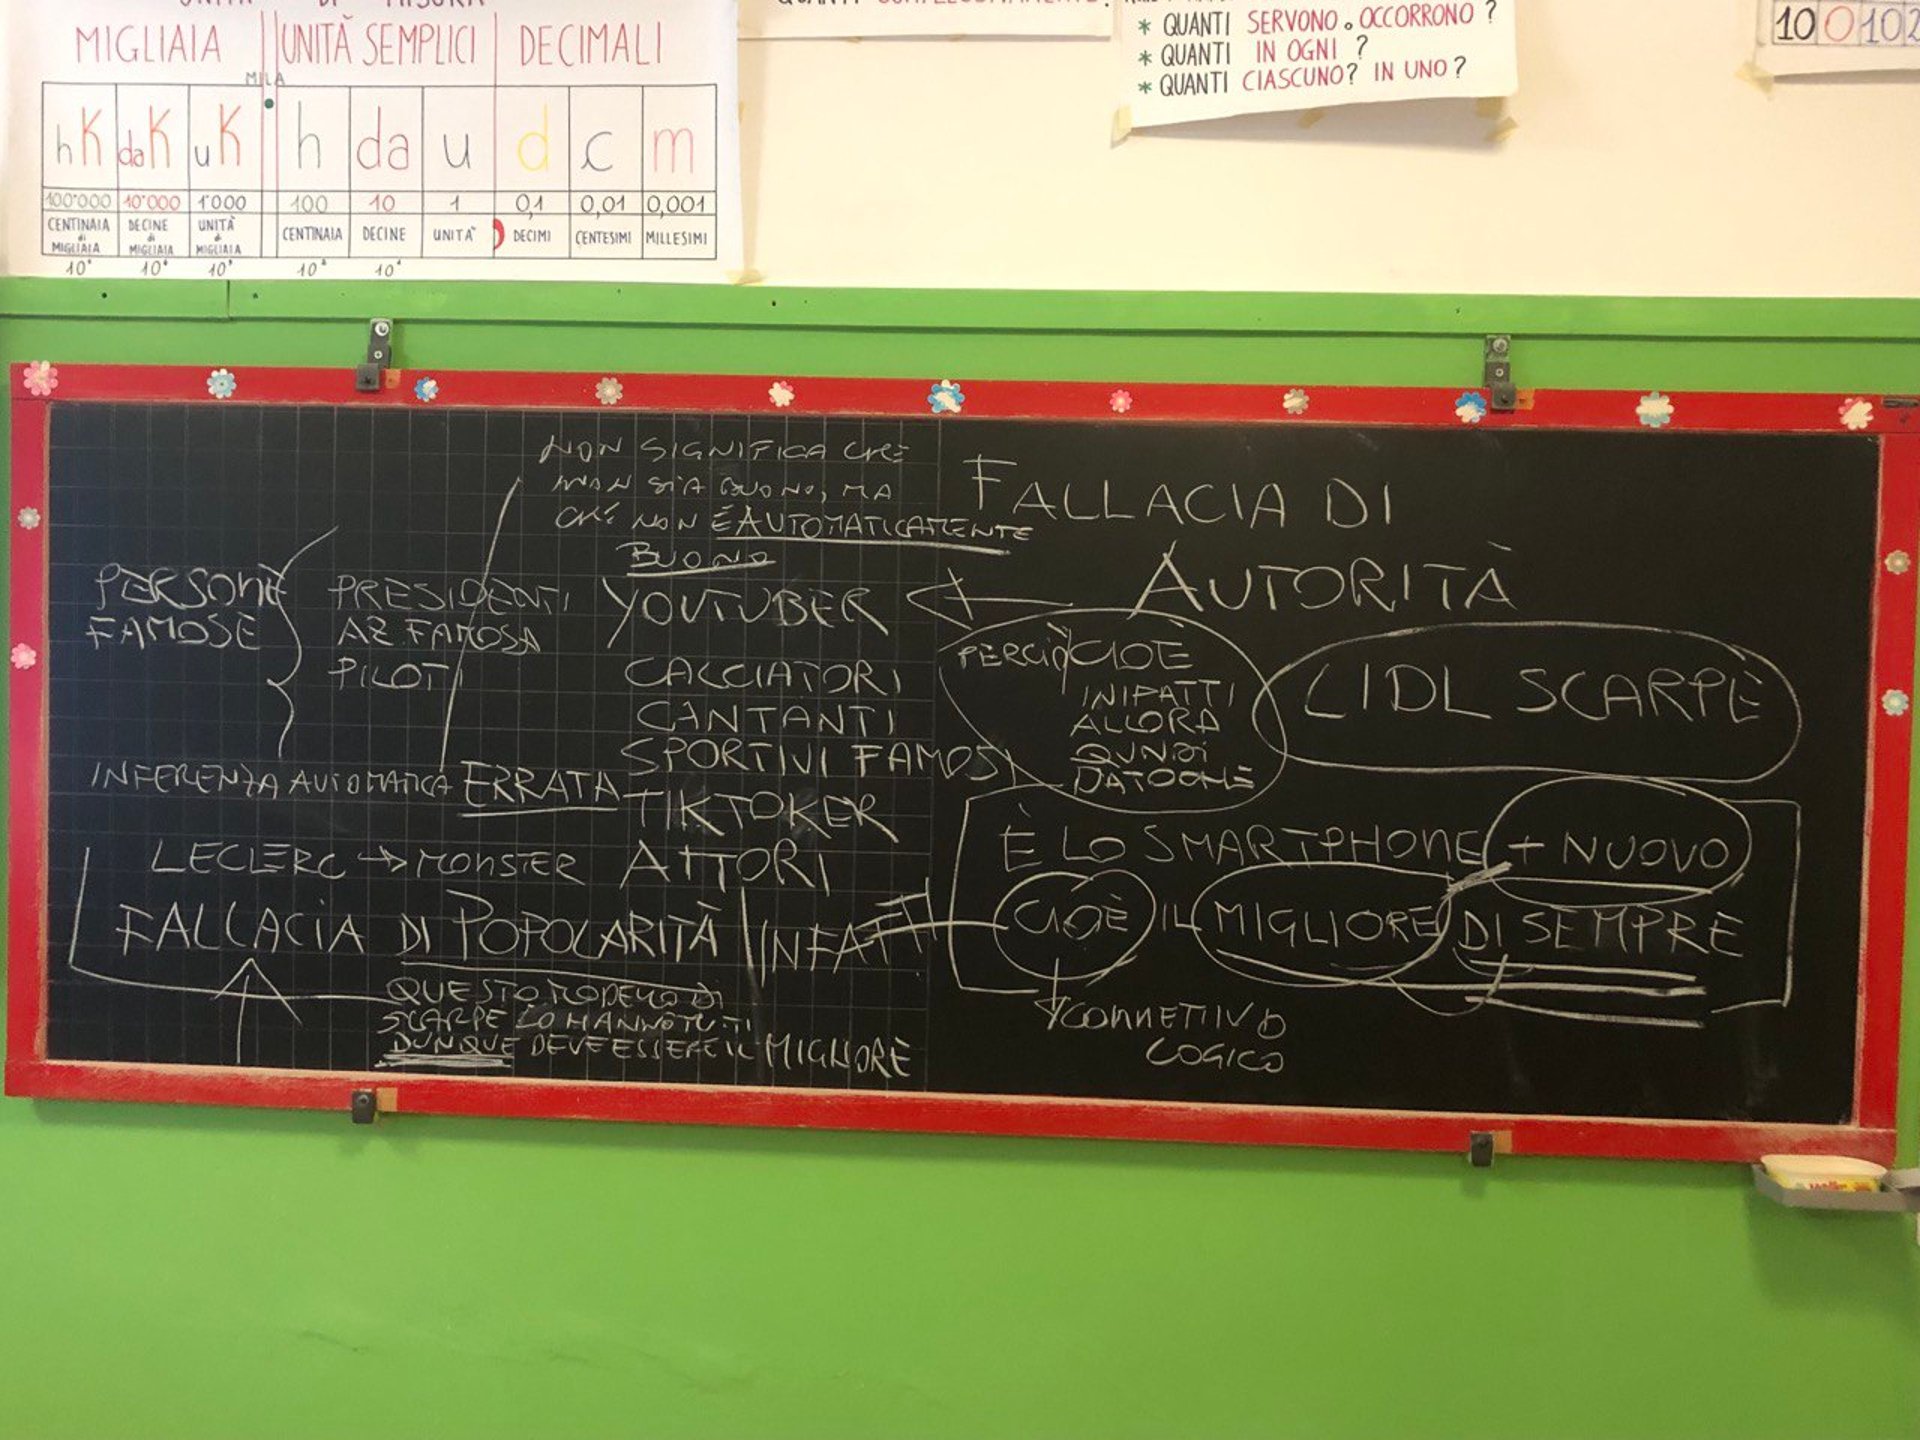 MIGLIAIA UNITÀ SEMPLICI DECIMALI
MILA
hK daK uK h da u d c m
100'000 10'000 1'000 100 10 1 0,1 0,01 0,001
CENTINAIA di MIGLIAIA DECINE di MIGLIAIA UNITÀ di MIGLIAIA CENTINAIA DECINE UNITA' DECIMI CENTESIMI MILLESIMI
* QUANTI SERVONO o OCCORRONO ?
* QUANTI IN OGNI ?
* QUANTI CIASCUNO? IN UNO?
10 0 102
NON SIGNIFICA CHE
NON SIA BUONO, MA
CHE NON È AUTOMATICAMENTE
BUONO
PERSONE
FAMOSE
PRESIDENTI
AZ. FAMOSA
PILOTI
YOUTUBER
CACCIATORI
CANTANTI
SPORTIVI FAMOSI
TIKTOKER
ATTORI
INFERENZA AUTOMATICA ERRATA
LECLERC → MONSTER
FALLACIA DI POPOLARITÀ
INFATTI
QUESTO MODELLO DI
SCARPE LO HANNO TUTTI
DUNQUE DEVE ESSERE IL MIGLIORE
FALLACIA DI
AUTORITÀ
PERCIÒ CIOÈ
INIPATTI
ALLORA
QUNDI
DATO CHE
LIDL SCARPE
È LO SMARTPHONE + NUOVO
CIOÈ IL MIGLIORE DI SEMPRE
CONNETTIVO
LOGICO